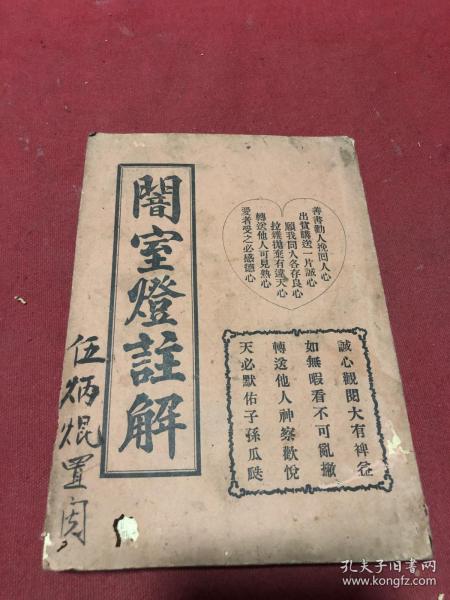 善書勸人挽回人心
出資購送一片誠心
願我同人各存良心
拉雜拋棄有違天心
轉送他人可見熱心
愛者受之必感德心
誠心觀閱大有裨益
如無暇看不可亂撇
轉送他人神察歡悅
天必默佑子孫瓜瓞
闇室燈註解
伍炳焜置閱
孔夫子旧书网
www.kongfz.com